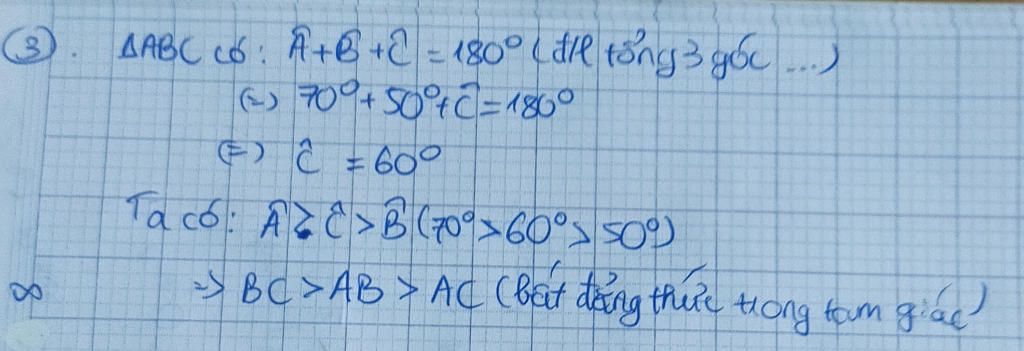 ③. ΔABC có: Â + B̂ + Ĉ = 180° (đ/l tổng 3 góc ...)
(=) 70° + 50° + Ĉ = 180°
(=) Ĉ = 60°
Ta có: Â > Ĉ > B̂ (70° > 60° > 50°)
∞ => BC > AB > AC (Bất đẳng thức trong tam giác)